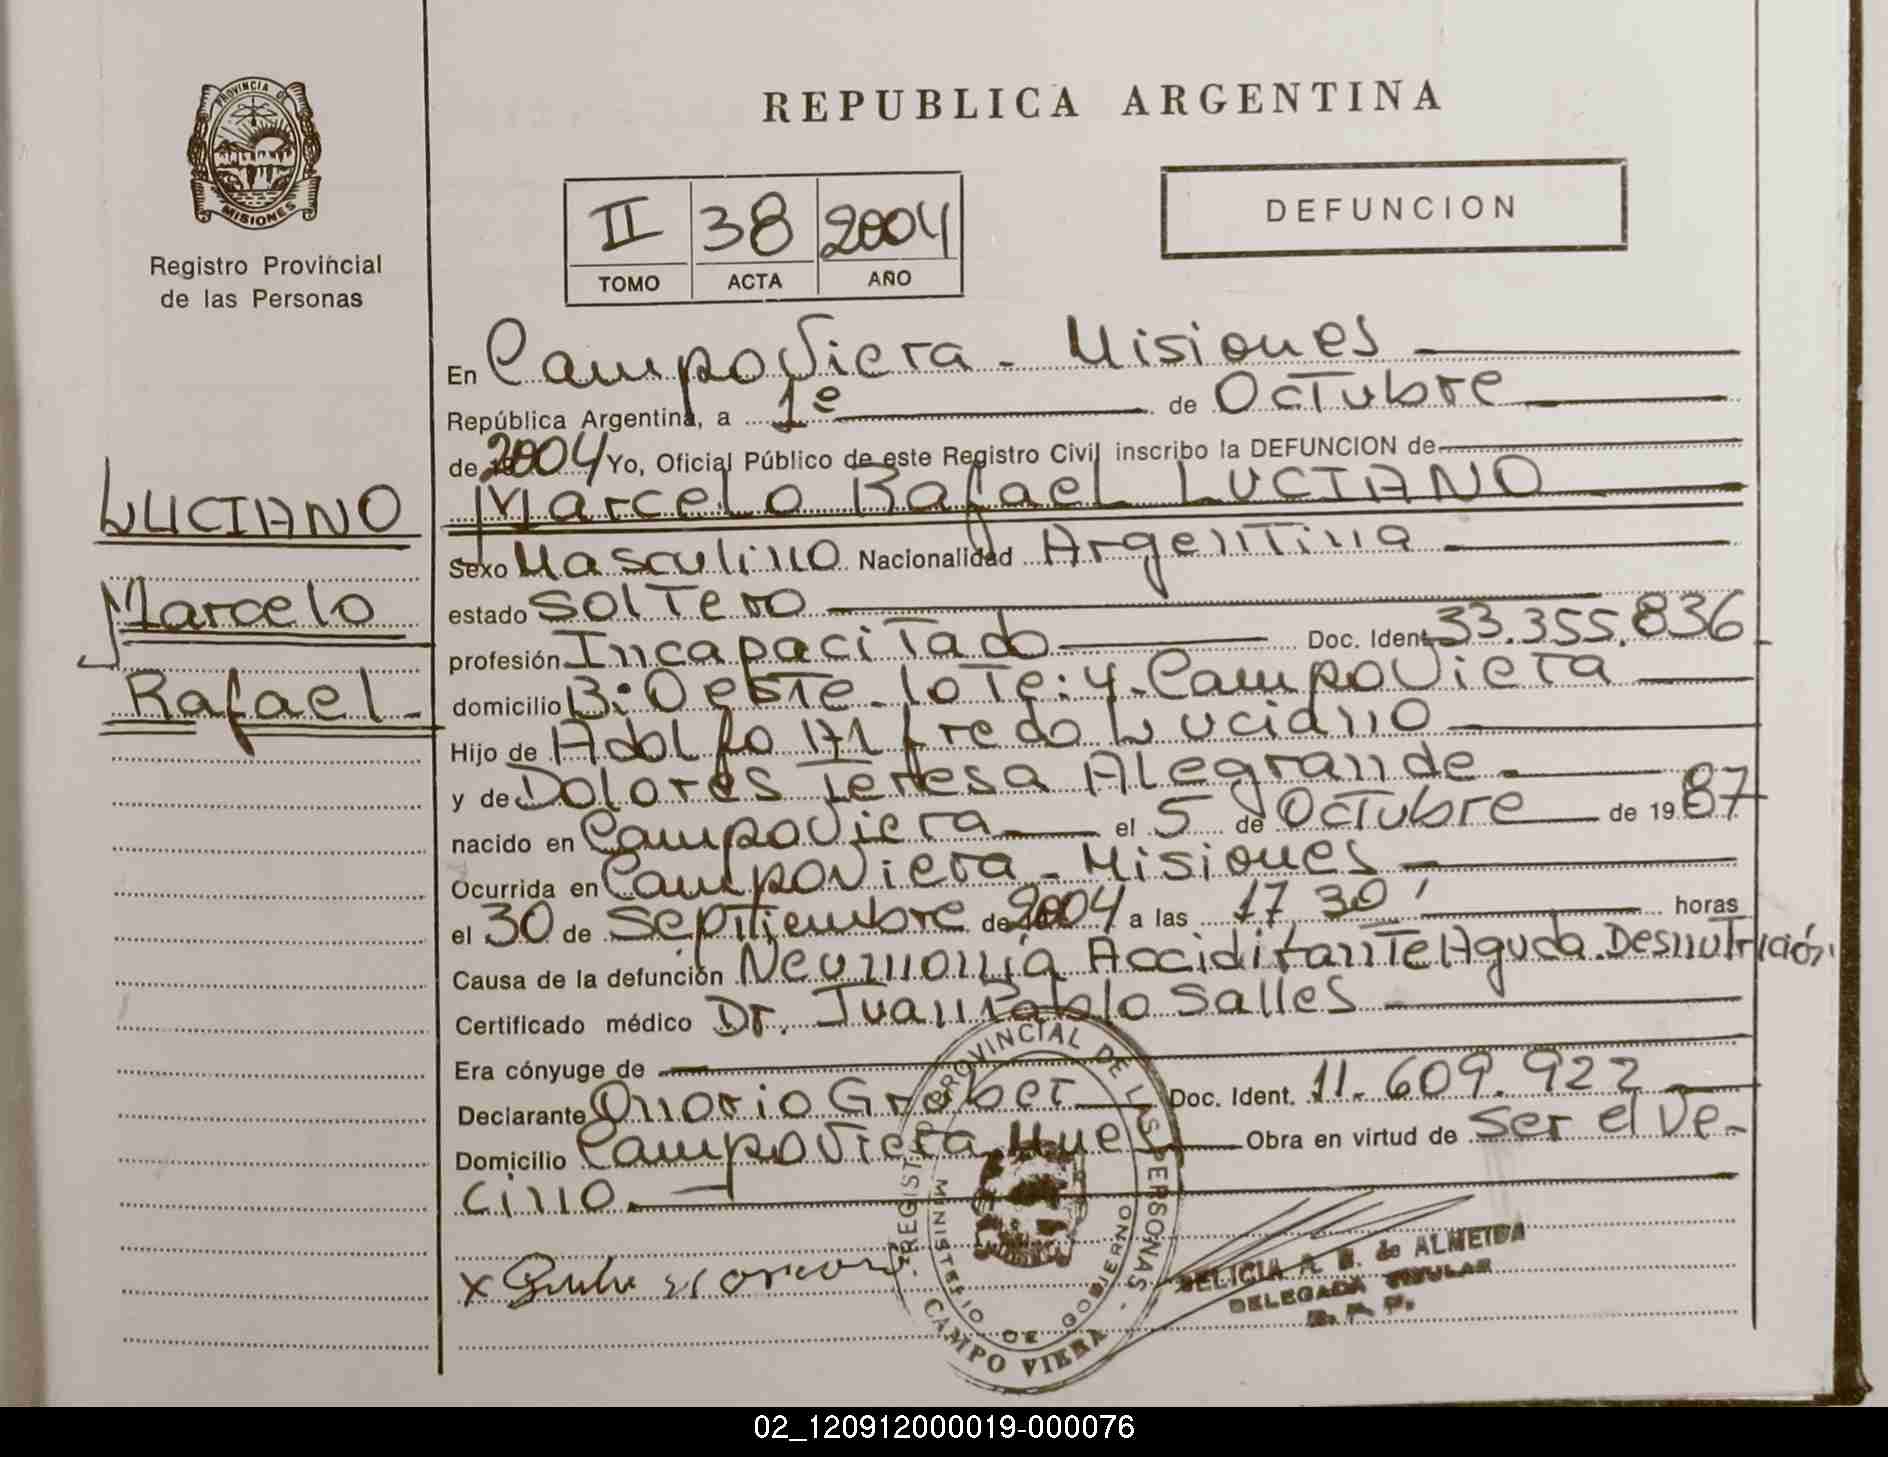 PROVINCIA DE
MISIONES
Registro Provincial
de las Personas
REPUBLICA ARGENTINA
II 38 2004
TOMO ACTA AÑO
DEFUNCION
LUCIANO
Marcelo
Rafael
En CampoViera - Misiones
República Argentina, a 1º de Octubre
de 2004 Yo, Oficial Público de este Registro Civil inscribo la DEFUNCION de
Marcelo Rafael LUCIANO
Sexo Masculino Nacionalidad Argentina
estado Soltero
profesión Incapacitado Doc. Ident. 33.355.836
domicilio B: Oeste lote: 4. CampoViera
Hijo de Adolfo Alfredo Luciano
y de Dolores Teresa Alegrande
nacido en CampoViera el 5 de Octubre de 1987
Ocurrida en CampoViera - Misiones
el 30 de Septiembre de 2004 a las 17 30' horas
Causa de la defunción Neumonía Acciditante Aguda. Desnutrición
Certificado médico Dr. Juan Pablo Salles
Era cónyuge de
Declarante Onorio Greber Doc. Ident. 11.609.922
Domicilio CampoViera Mnes Obra en virtud de ser el Ve-
cino.
x
REGISTRO PROVINCIAL DE LAS PERSONAS
MINISTERIO DE GOBIERNO
CAMPO VIERA
DELICIA A. de ALMEIDA
DELEGADA TITULAR
R. P. P.
02_120912000019-000076